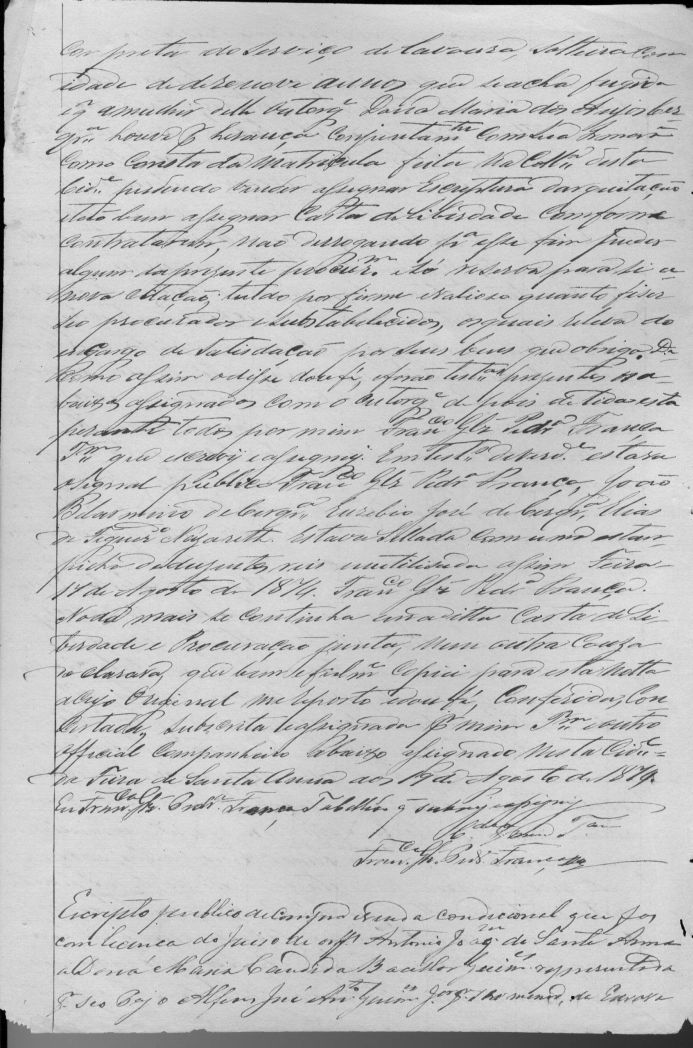 cor preta do serviço de lavoura, solteira com
idade de desenove annos que se acha fugida
e q̃ a mulher delle outorg.e Dona Maria dos Anjos
q̃ houve p͂ herança conjuntam.te com sua
como consta da matricula feita na Coll.a desta
Cid.e podendo vender assignar Escriptura dar quitação
e tão bem assignar Carta de Liberdade comforme
contratarem, não derrogando p.a esse fim poder
algum da prezente procur.m e só reserva para si a
nova citação; tudo por firme e valioso quanto fizer
seo procurador e substabelecidos, os quais releva do
encargo de satisdação por seus bens que obriga. De
como assim o disse dou fé, e forão test.as prezentes os a-
baixo assignados com o outorg.e depois de lida esta
perante todos por mim Fran.co Glz Pedr.a França
T.am que escrevi e assignei. Em test.o de verd.e estava
o signal publico Fran.co Glz Pedr.a França, João
de Cerq.ra Euzebio José de Cerq.ra Elias
de Siqueir.a Nazareth. Estava sellada com uma estam-
pilha de duzentos reis inutilisada assim Feira
17 de Agosto de 1874. Fran.co Glz Pedr.a França.
Nada mais se continha em a ditta Carta de Li-
berdade e Procuração junta, nem outra couza
declarava, que bem e fielm.te copiei para esta notta
a cujo original me reporto e dou fé, conferida, con-
certada, subscrita e assignada p͂ mim T.am e outro
official companheiro abaixo assignado nesta Cid.e
da Feira de Santa Anna aos 19 de Agosto de 1874.
Eu Fran.co Glz Pedr.a França Tabellião q̃ subscrevy e assigney
Fran.co Glz Pedr.a França
Escripto publico de compra e venda condicional que faz
com licença do Juiso de orfs Antonio Joaq.m de Santa Anna
a Dona Maria Candida representada
p.r seo Pay o Alferes José menor, da Escrava